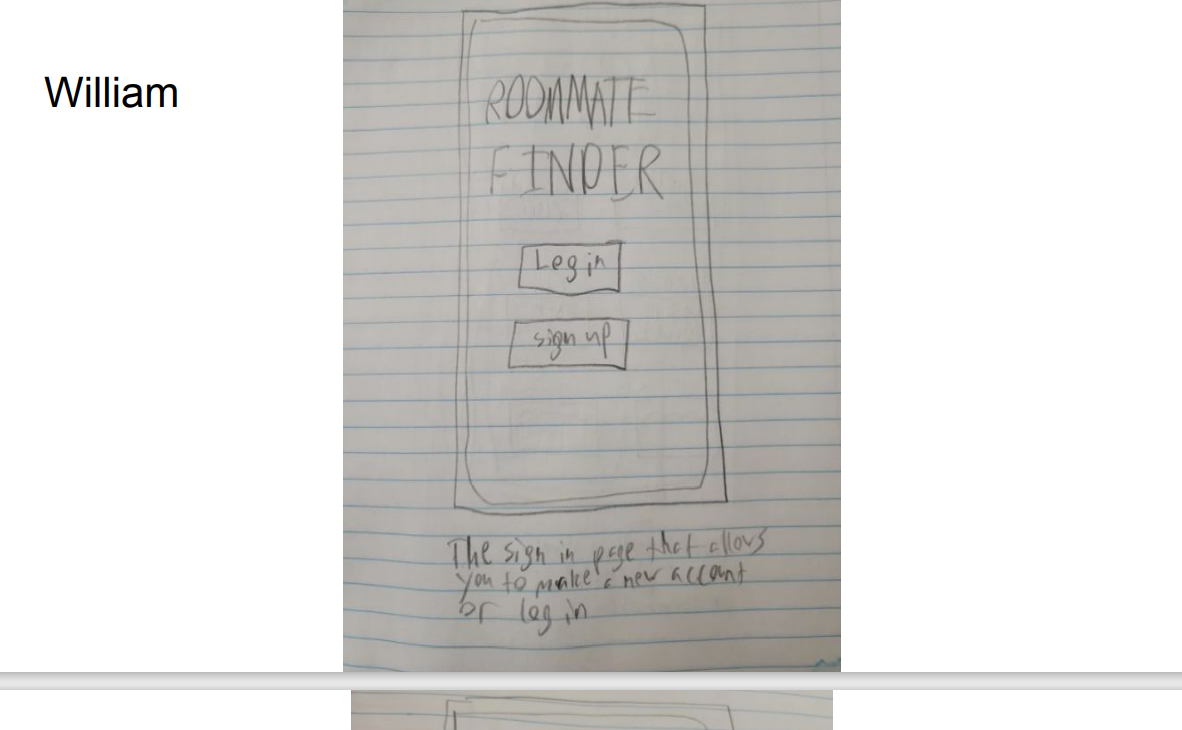 William
ROOMMATE
FINDER
Log in
sign up
The sign in page that allows
you to make a new account
or log in